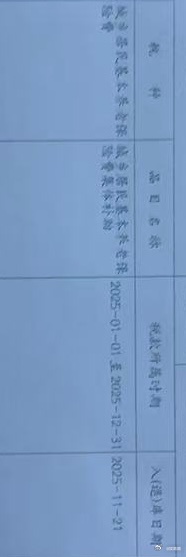 税 种
品 目 名 称
税款所属时期
入(退)库日期
城乡居民基本养老保
险费
城乡居民基本养老保
险费集体补助
2025-01-01至2025-12-31
2025-11-21